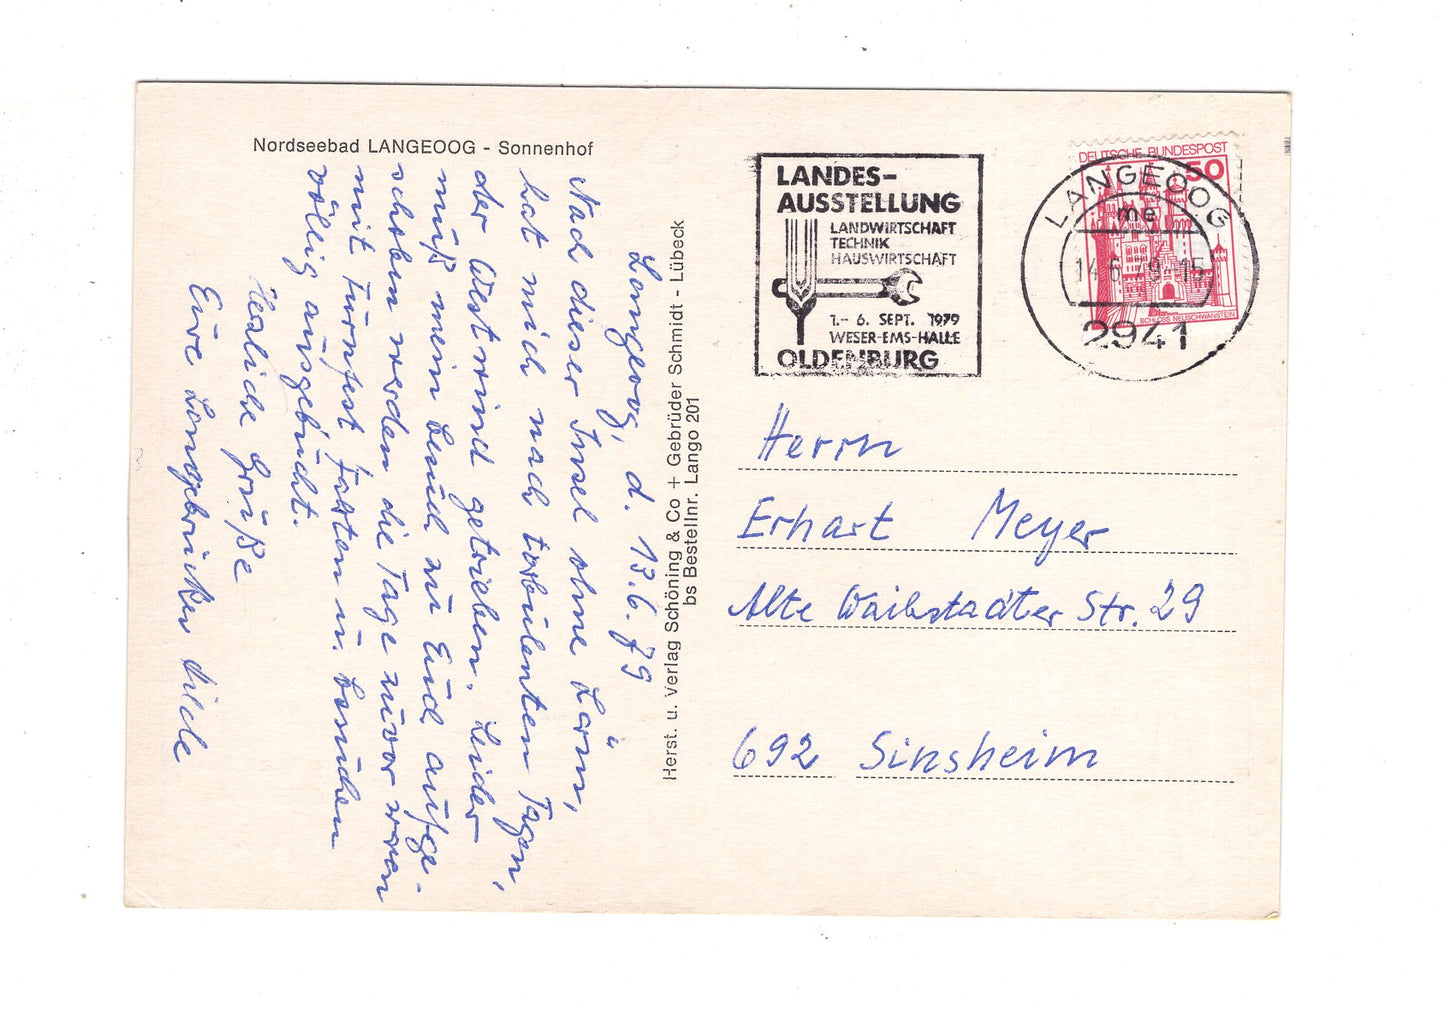 Nordseebad LANGEOOG - Sonnenhof
Langeoog, d. 13.6.79
Nach dieser Insel ohne Lärm,
hat mich nach turbulenten Tagen,
der Westwind getrieben. Leider
muß mein Besuch zu Euch aufge-
schoben werden die Tage zuvor waren
mit Turnfest fasten u. besuchen
völlig ausgebucht.
Herzliche Grüße
Eure Hilde
Herst. u. Verlag Schöning & Co + Gebrüder Schmidt - Lübeck
bs Bestellnr. Lango 201
LANDES-
AUSSTELLUNG
LANDWIRTSCHAFT
TECHNIK
HAUSWIRTSCHAFT
1.- 6. SEPT. 1979
WESER-EMS-HALLE
OLDENBURG
DEUTSCHE BUNDESPOST
50
SCHLOSS NEUSCHWANSTEIN
LANGEOOG
me
14.6.79-15
2941
Herrn
Erhart Meyer
Alte Waibstadter Str. 29
692 Sinsheim